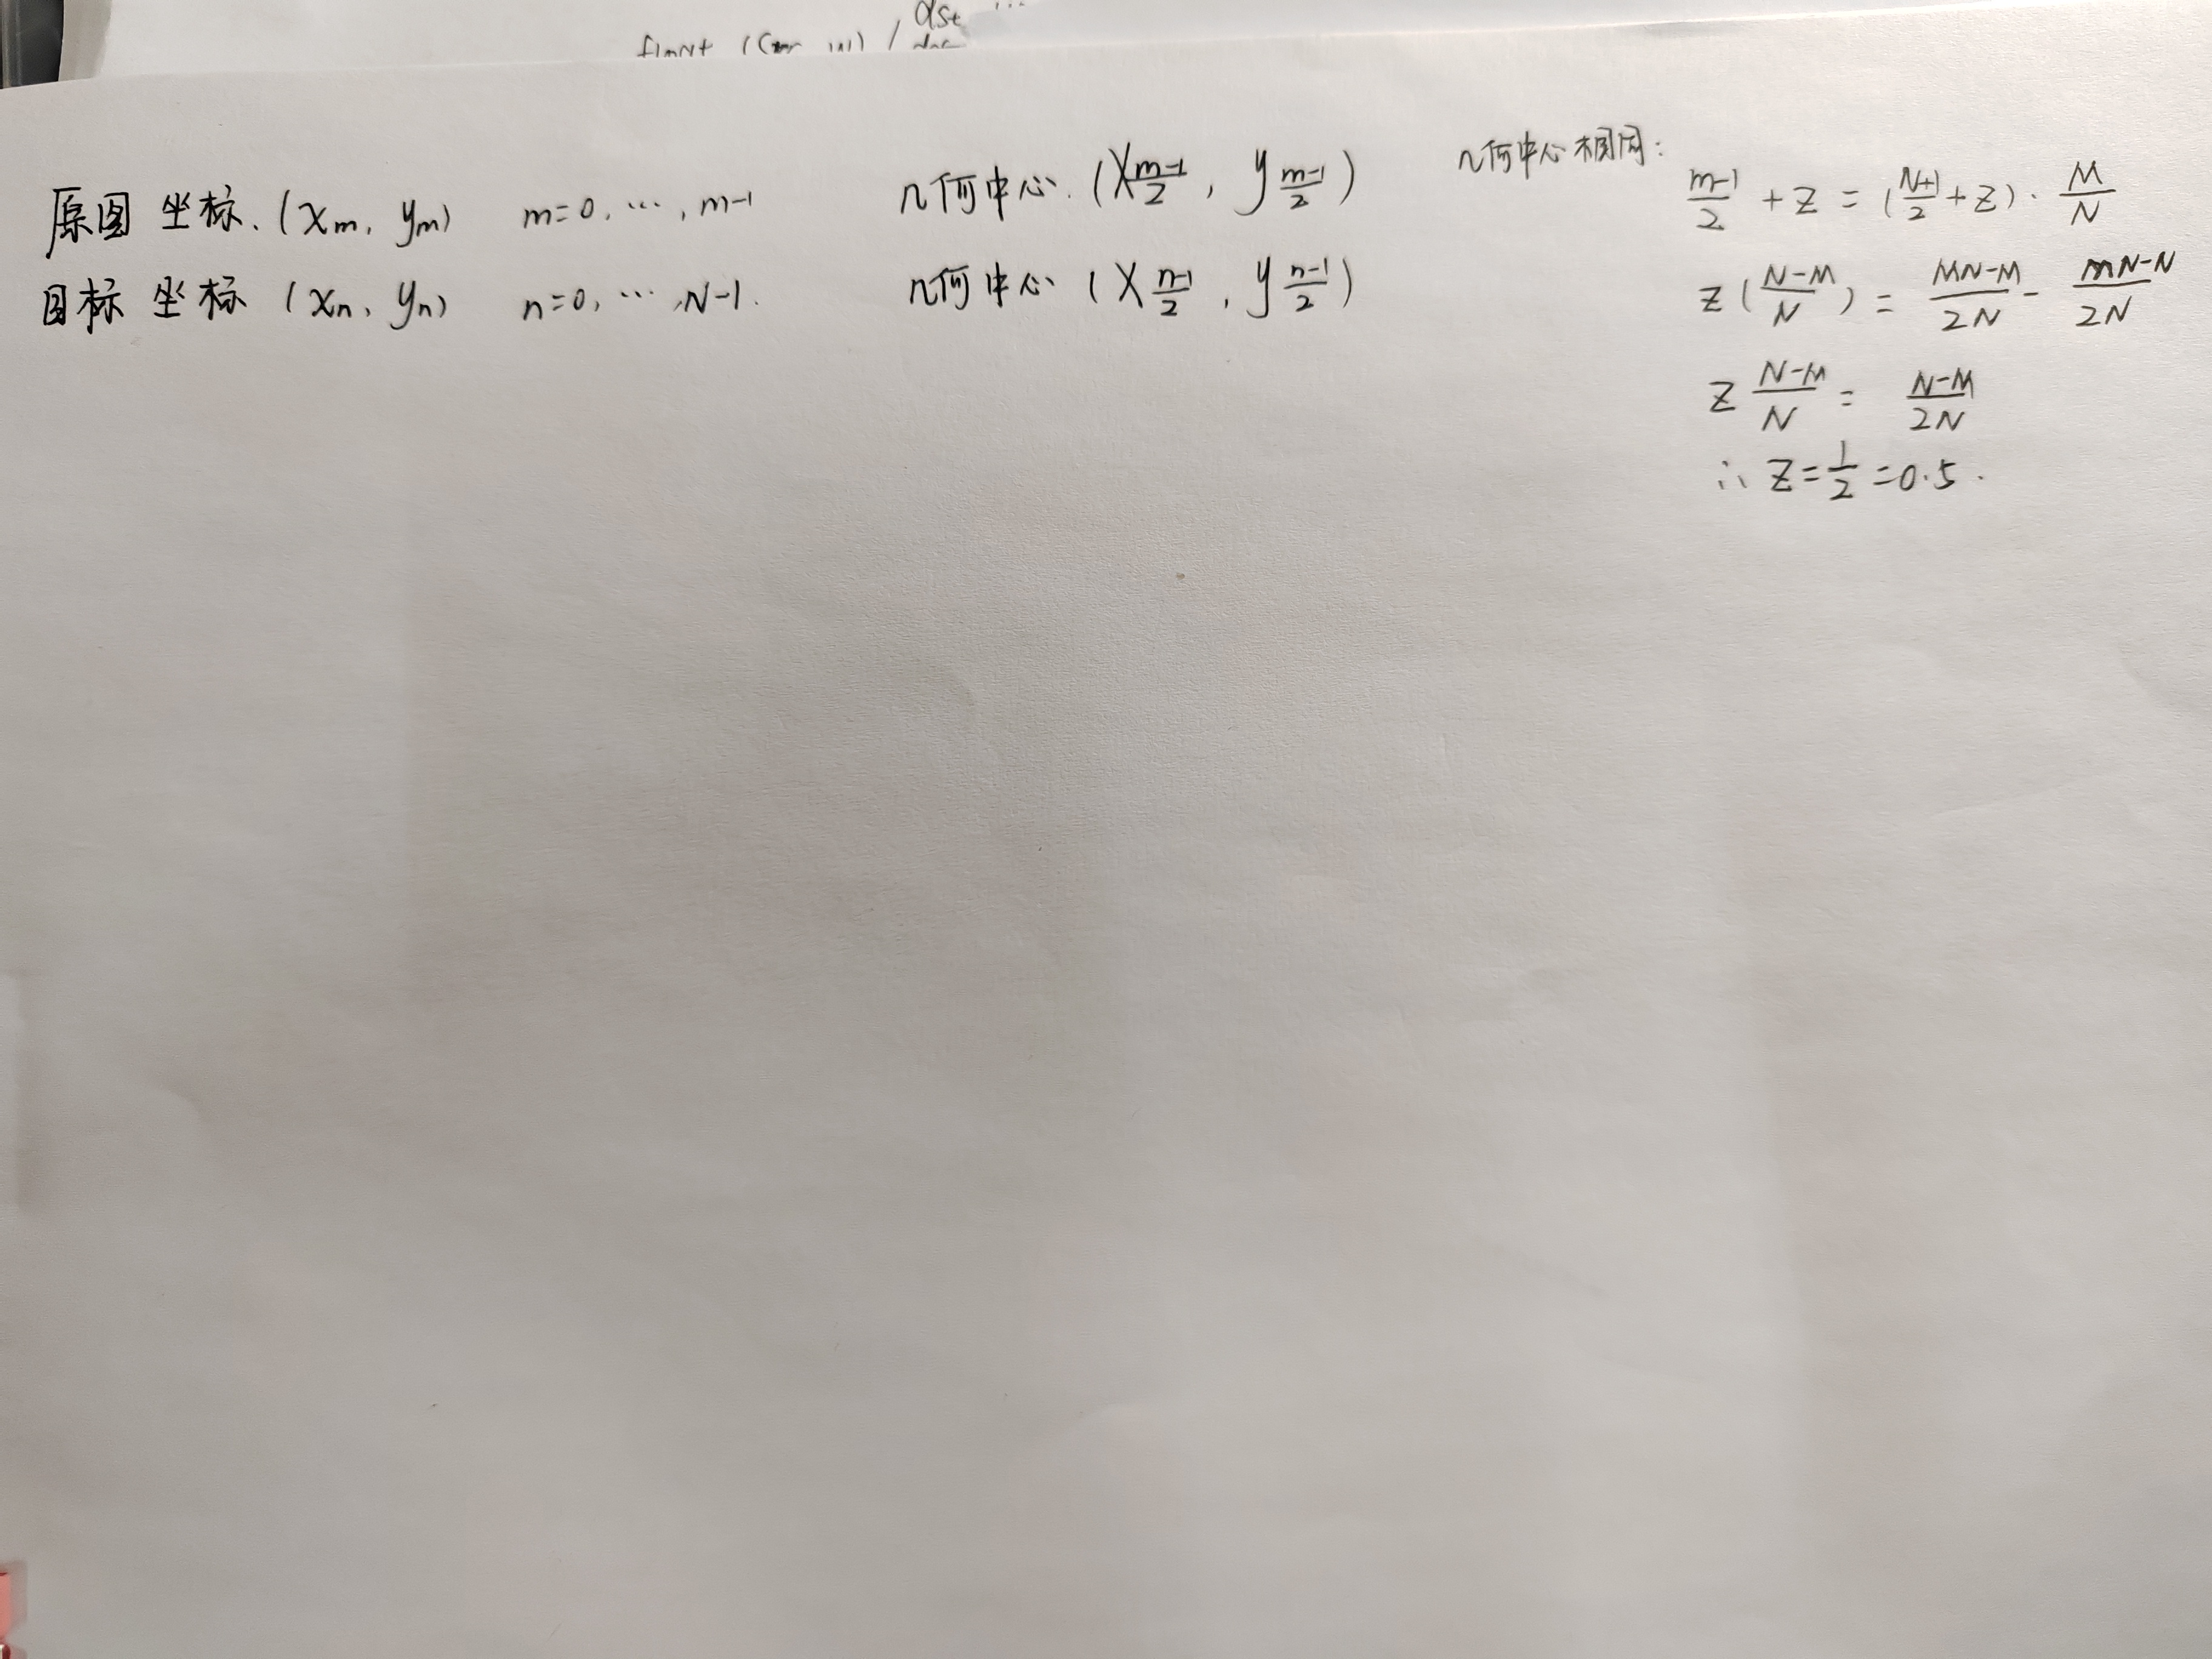 dst
原图 坐标. (xm, ym) m=0, ⋯, m-1 几何中心. (X (m-1)/2, y (m-1)/2)
目标 坐标 (xn, yn) n=0, ⋯, N-1. 几何中心 (X (n-1)/2, y (n-1)/2)
几何中心相同:
(m-1)/2 + Z = ((N+1)/2 + Z) · M/N
Z ((N-M)/N) = (MN-M)/2N - (mN-N)/2N
Z (N-M)/N = (N-M)/2N
∴ Z = 1/2 = 0.5.